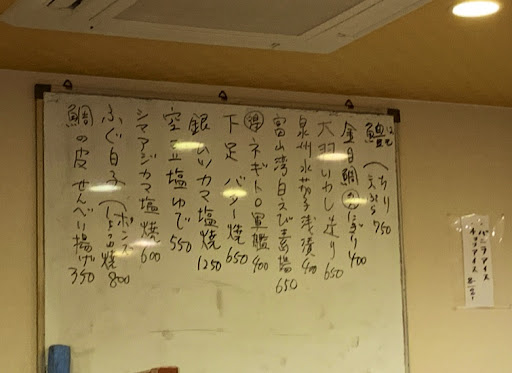 鱧(ちり 天ぷら 750
金目鯛の炙にぎり 400
大羽いわし造り 650
泉州水茄子浅漬 400
富山湾白えび素揚 650
得ネギトロ軍艦 400
下足バター焼 650
銀ムツカマ塩焼 1250
空豆塩ゆで 550
シマアジカマ塩焼 600
ふぐ白子(ポンズ 焼 800
鯛の皮せんべい揚げ 350
バニラアイス
チョコアイス